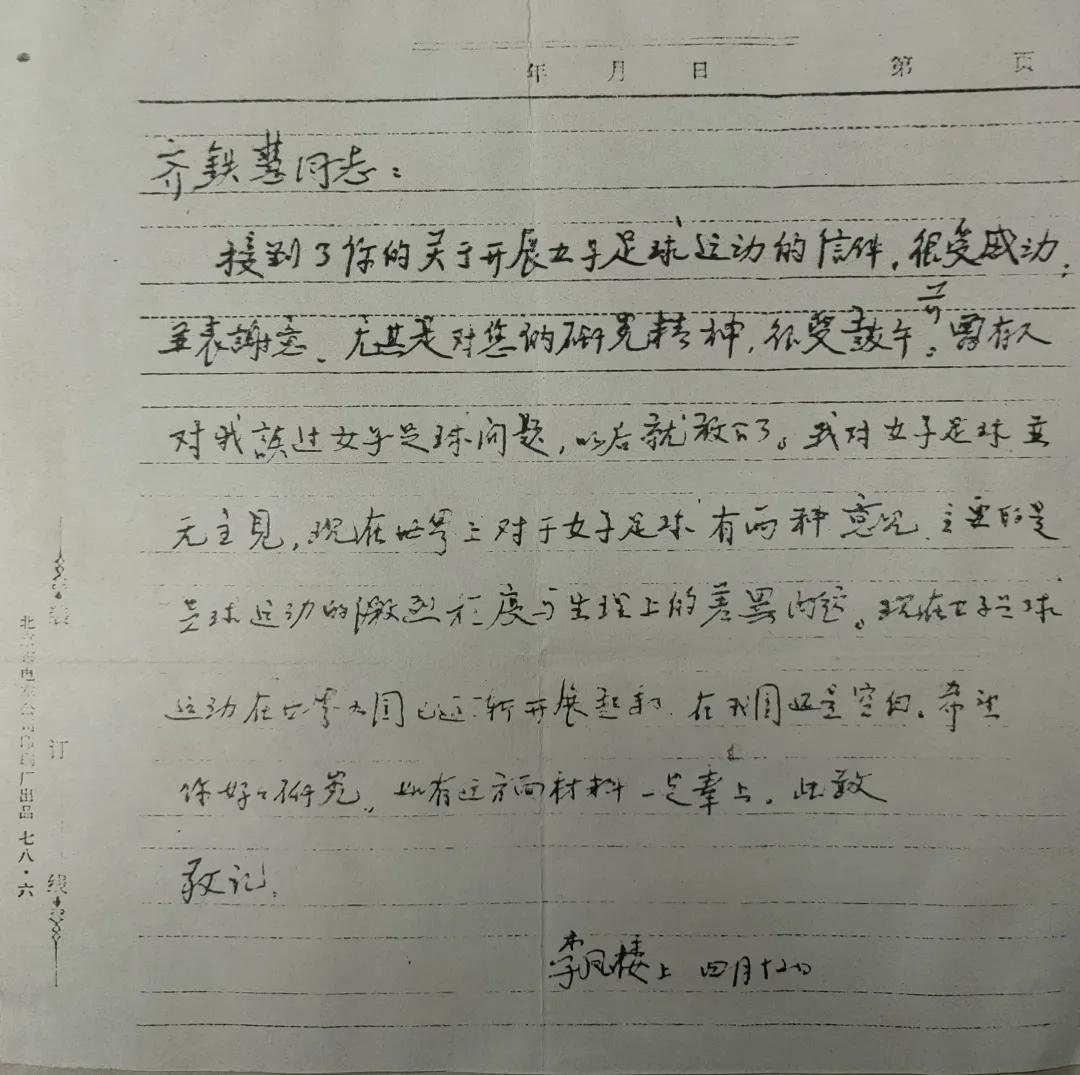 年 月 日 第 页
齐铁慧同志：
接到了你的关于开展女子足球运动的信件，很受感动，
并表謝意、尤其是对您的研究精神，很受鼓午。曾有人
对我談过女子足球问题，以后就散了。我对女子足球並
无主見，现在世界上对于女子足球有两种意见，主要的是
足球运动的激烈程度与生理上的差異问题。现在女子足球
运动在世界各国已逐渐开展起来，在我国还是空白。希望
你好好研究，如有这方面材料一定奉上。此致
敬礼，
李凤楼上 四月十二日
装
订
线
北京市电车公司印刷厂出品 七八·六